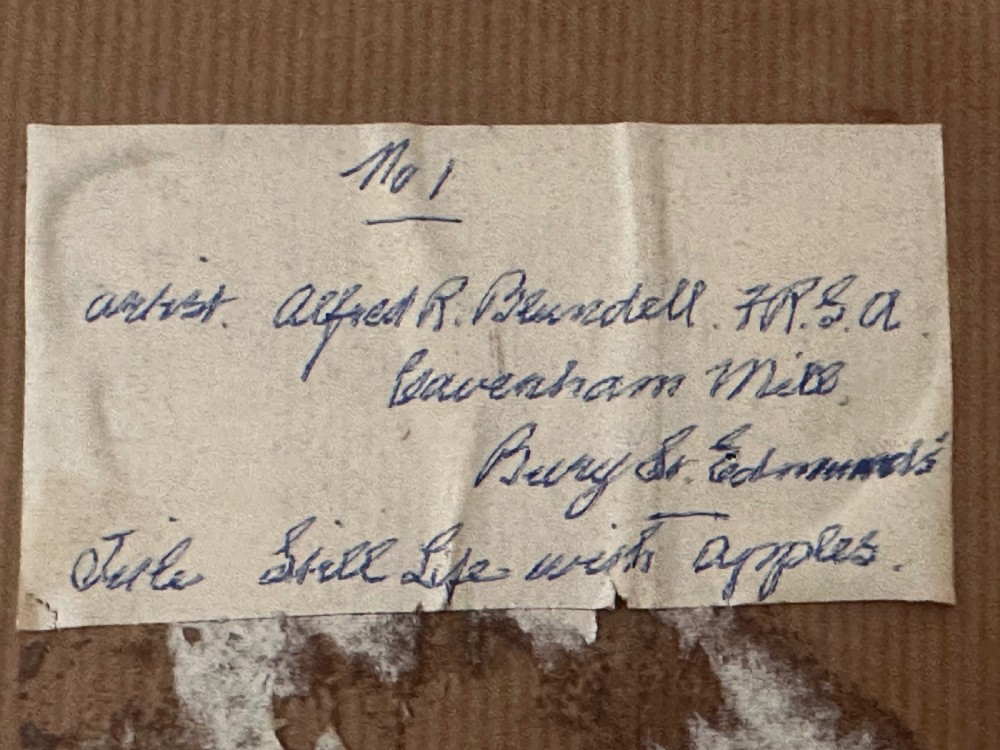 No 1
artist. Alfred R. Blundell. F.R.S.A.
Cavenham Mill.
Bury St. Edmund's
Title Still Life with apples.